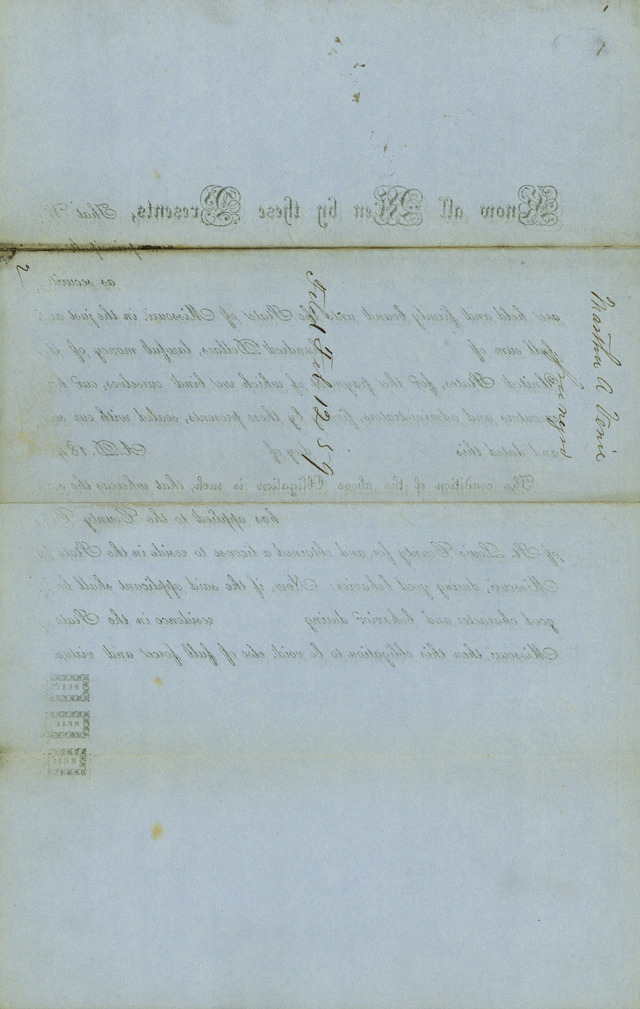 Know all Men by these Presents, That
as
are held and firmly bound unto the State of Missouri, in the just
full sum of hundred Dollars, lawful money of
United States, for the of which we bind ourselves, our
and administrators, by these presents, sealed with our
and dated this day of A.D. 18
The condition of the above Obligation is such, that whereas the
has applied to the County
of St. Louis County for, and obtained a license to reside in the State
Missouri, during good behavior: Now, if the said applicant shall be
good character and behavior during residence in the State
Missouri, then this obligation to be void, else of full force and
SEAL
SEAL
SEAL
Filed Feb 12 59
Martha A